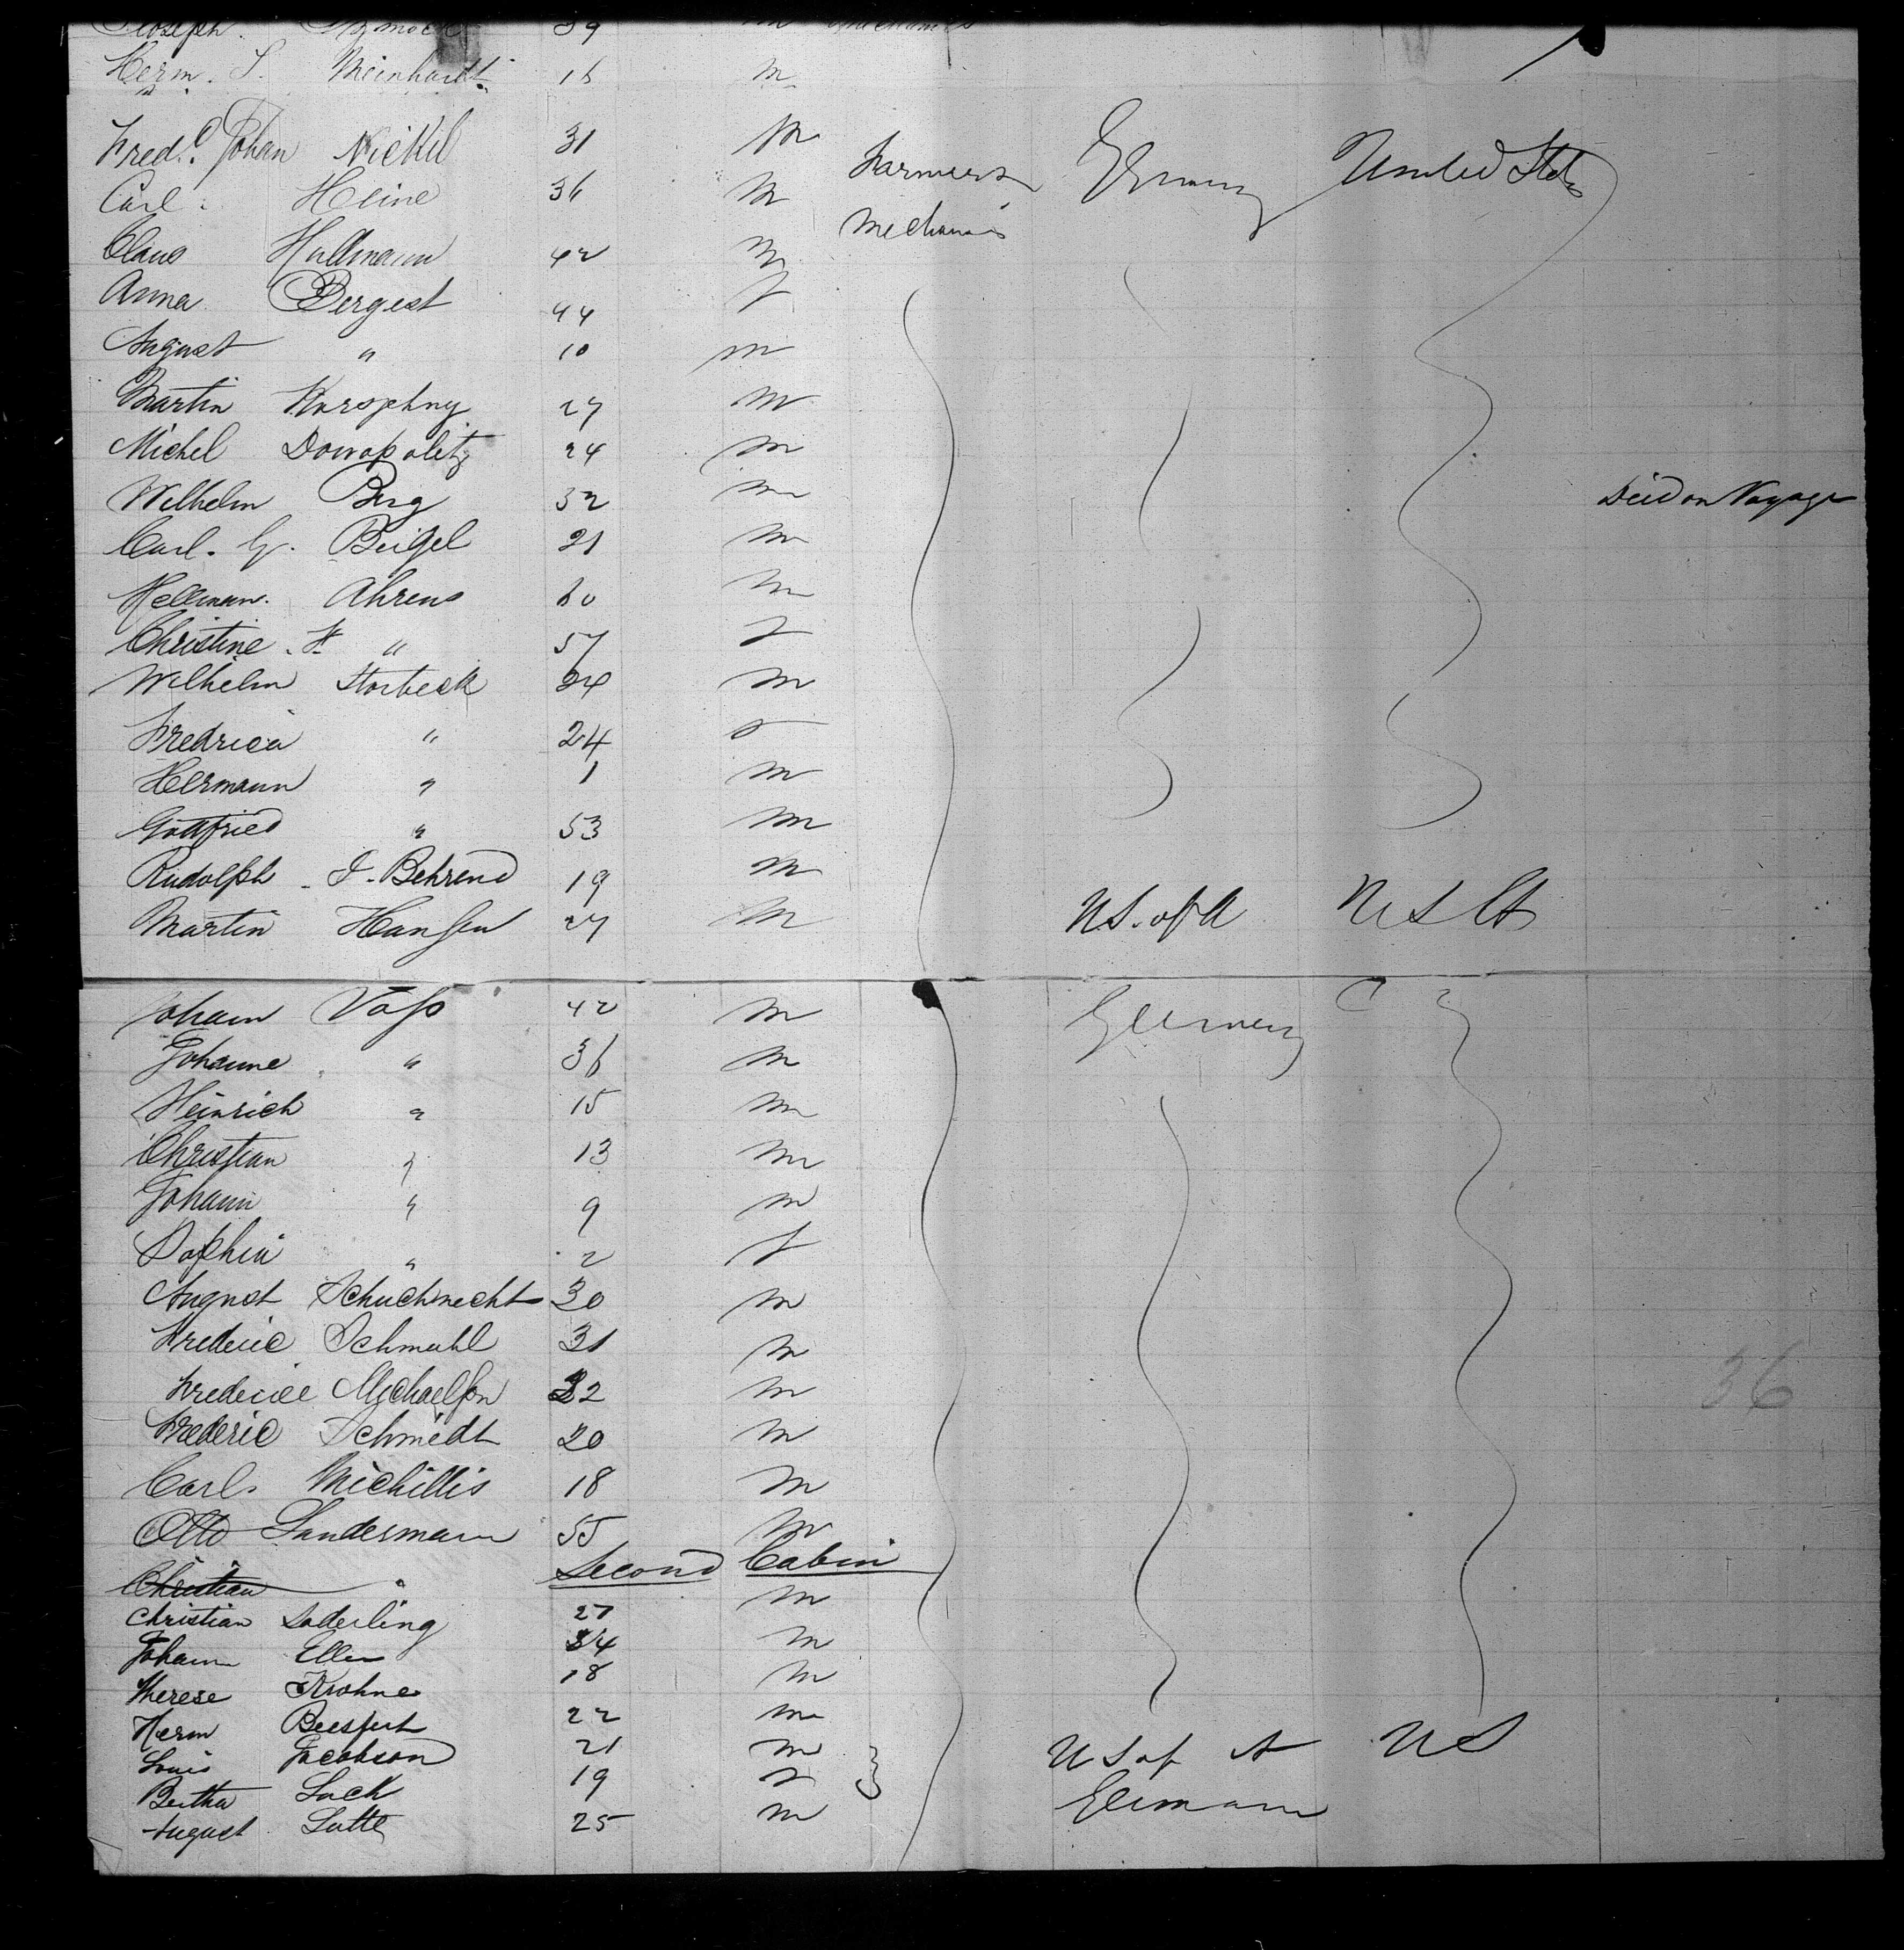 Joseph 39 m Mechanics
Herm. S. Meinhardt 16 m
Fred. Johan Nickel 31 m Farmers Germany United Stats
Carl Heine 36 m
Mechanics
Claus Hallmann 42 m
Anna Bergest 44 f
August " 10 m
Martin 27 m
Michel Dowopolitz 24 m
Wilhelm Berg 32 m Died on Voyage
Carl. G. Beigel 21 m
Hellman. Ahrens 60 m
Christine. H. " 57 f
Wilhelm Storbeck 24 m
Fredrica " 24 f
Hermann " 1 m
Gottfried " 53 m
Rudolph - J. Behrend 19 m
Martin Hansen 27 m U.S. of A U S A
Johann Voss 42 m Germany
Johanne " 36 m
Heinrich " 15 m
Christian " 13 m
Johann " 9 m
Sophia " 2 f
August Schuchnecht 30 m
Frederic Schmahl 31 m
36
Frederice Michaelson 22 m
Frederic Schmidt 20 m
Carl. Michillis 18 m
Otto Sandermann 55 m
Second Cabin
Christian "
Christian Saderling 27 m
Johann Ellen 34 m
Therese Krohne 18 m
Herm 22 m
Louis Jacobson 21 m U S of A U S
Bertha Sack 19 f
August Latte 25 m German